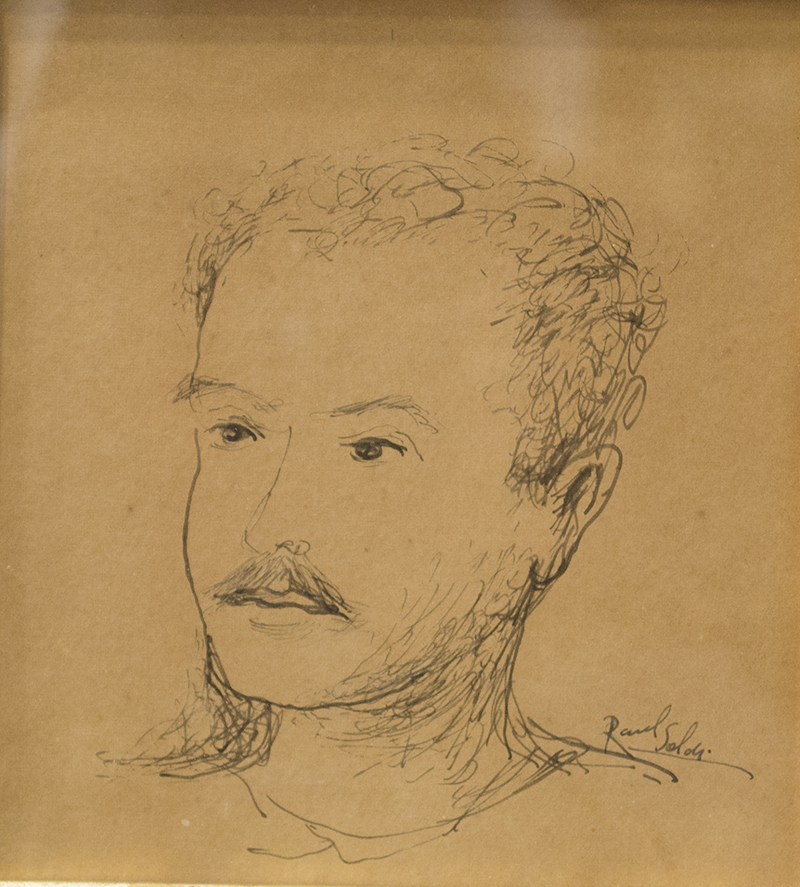 Raul Soldi.